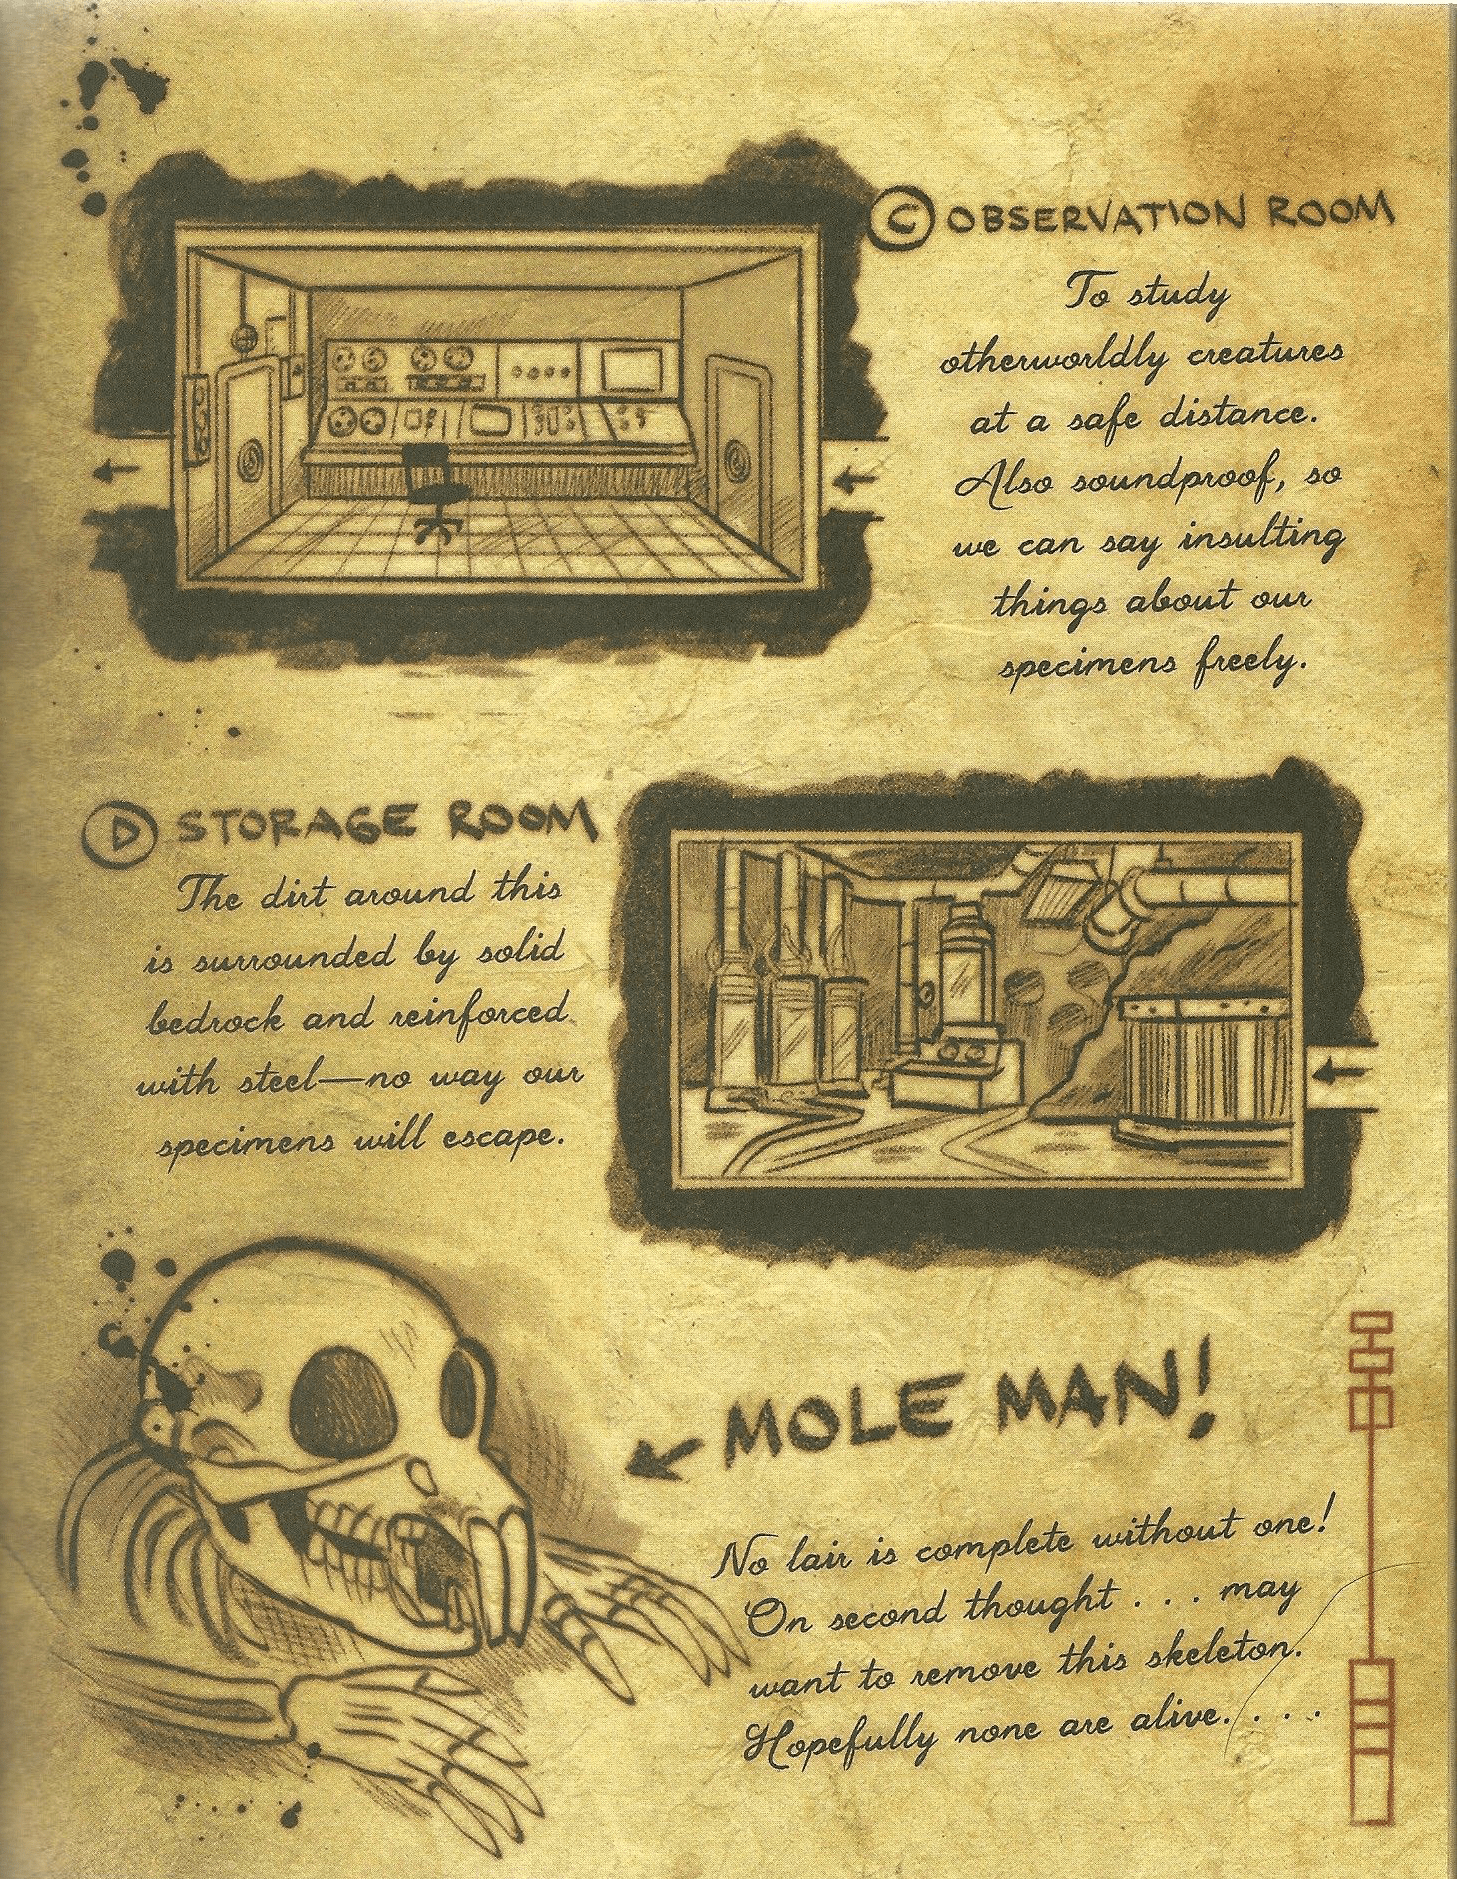 C OBSERVATION ROOM
To study
otherworldly creatures
at a safe distance.
Also soundproof, so
we can say insulting
things about our
specimens freely.
D STORAGE ROOM
The dirt around this
is surrounded by solid
bedrock and reinforced
with steel—no way our
specimens will escape.
MOLE MAN!
No lair is complete without one!
On second thought . . . may
want to remove this skeleton.
Hopefully none are alive. . . .